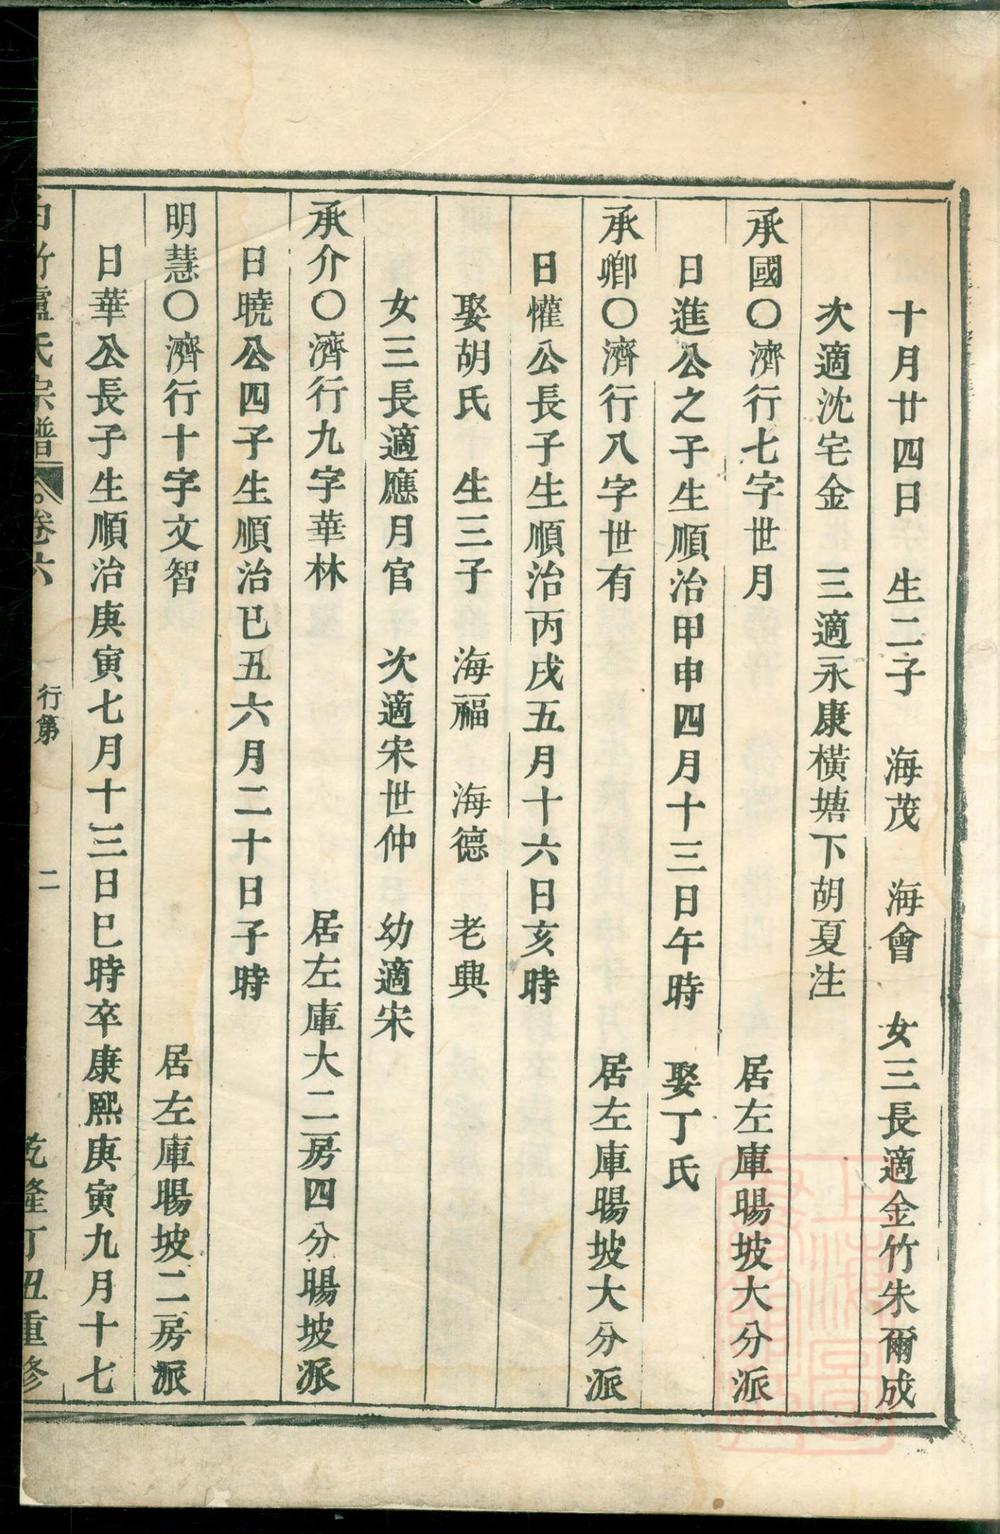 十月廿四日　生二子　海茂　海會　女三長適金竹朱爾成
次適沈宅金　三適永康橫塘下胡夏注
承國〇濟行七字世月　居左庫暘坡大分派
日進公之子生順治甲申四月十三日午時　娶丁氏
承卿〇濟行八字世有　居左庫暘坡大分派
日懽公長子生順治丙戌五月十六日亥時
娶胡氏　生三子　海福　海德　老興
女三長適應月官　次適宋世仲　幼適宋
承介〇濟行九字華林　居左庫大二房四分暘坡派
日曉公四子生順治已丑六月二十日子時
明慧〇濟行十字文智　居左庫暘坡二房派
日華公長子生順治庚寅七月十三日巳時卒康熙庚寅九月十七
白竹盧氏宗譜　卷六　行第　二　乾隆丁丑重修
上海圖